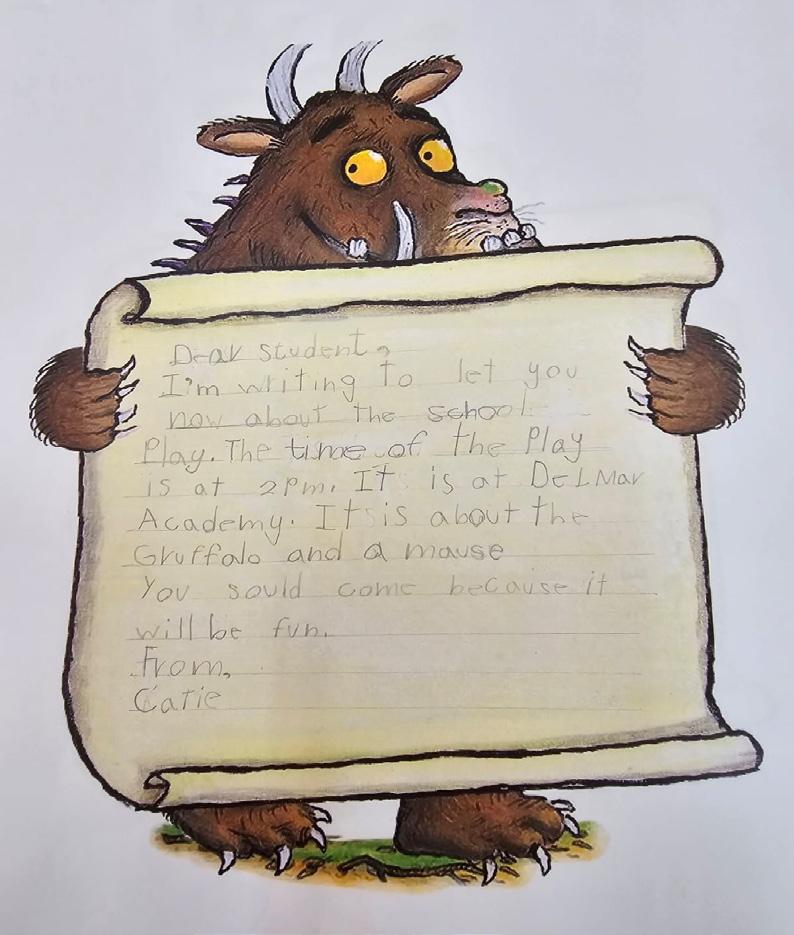 Dear student,
I'm writing to let you
now about the school
Play. The time of the Play
is at 2pm. It is at DelMar
Academy. It is about the
Gruffalo and a mouse
You sould come because it
will be fun.
From,
Catie